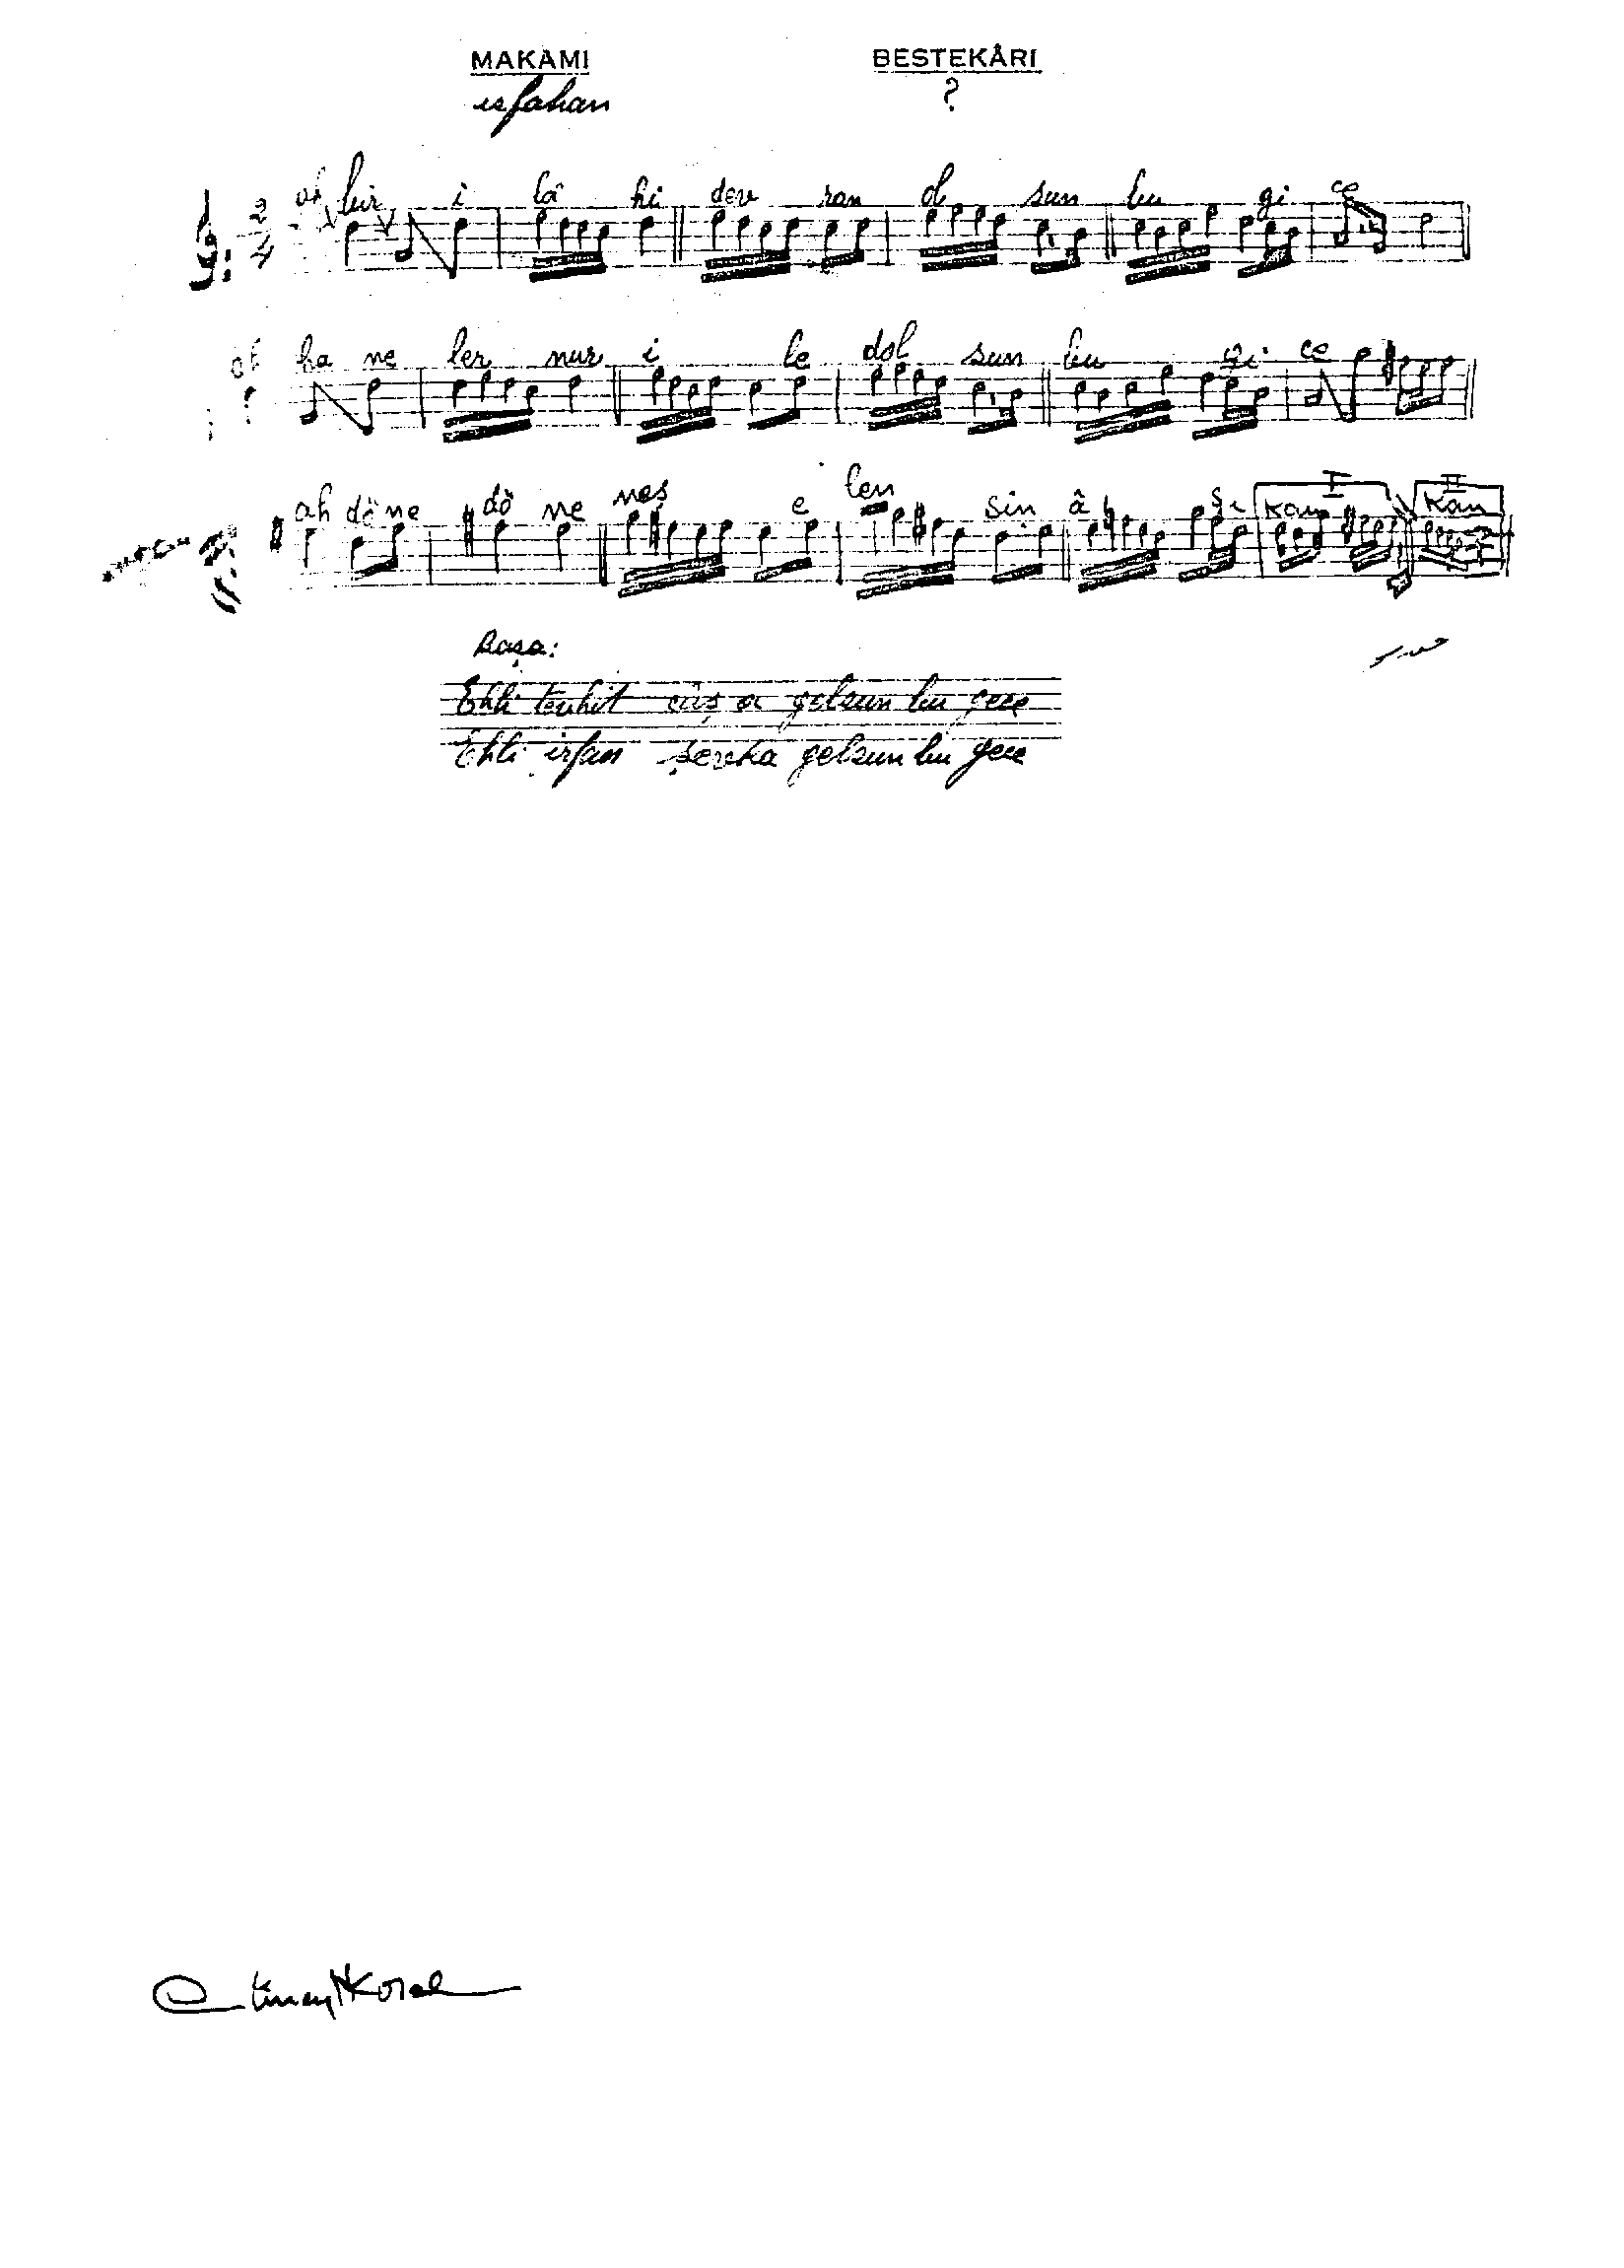 MAKAMI BESTEKÂRI
isfahan ?
2 4
ah bir i lâ hi dev ran ol sun bu gi ce
ah ha ne ler nur i le dol sun bu gi ce
ah dö ne dö ne neş e len sin â şı kan kan
I II
Başa:
Ehli tevhit cuş a gelsun bu gece
Ehli irfan şevka gelsun bu gece